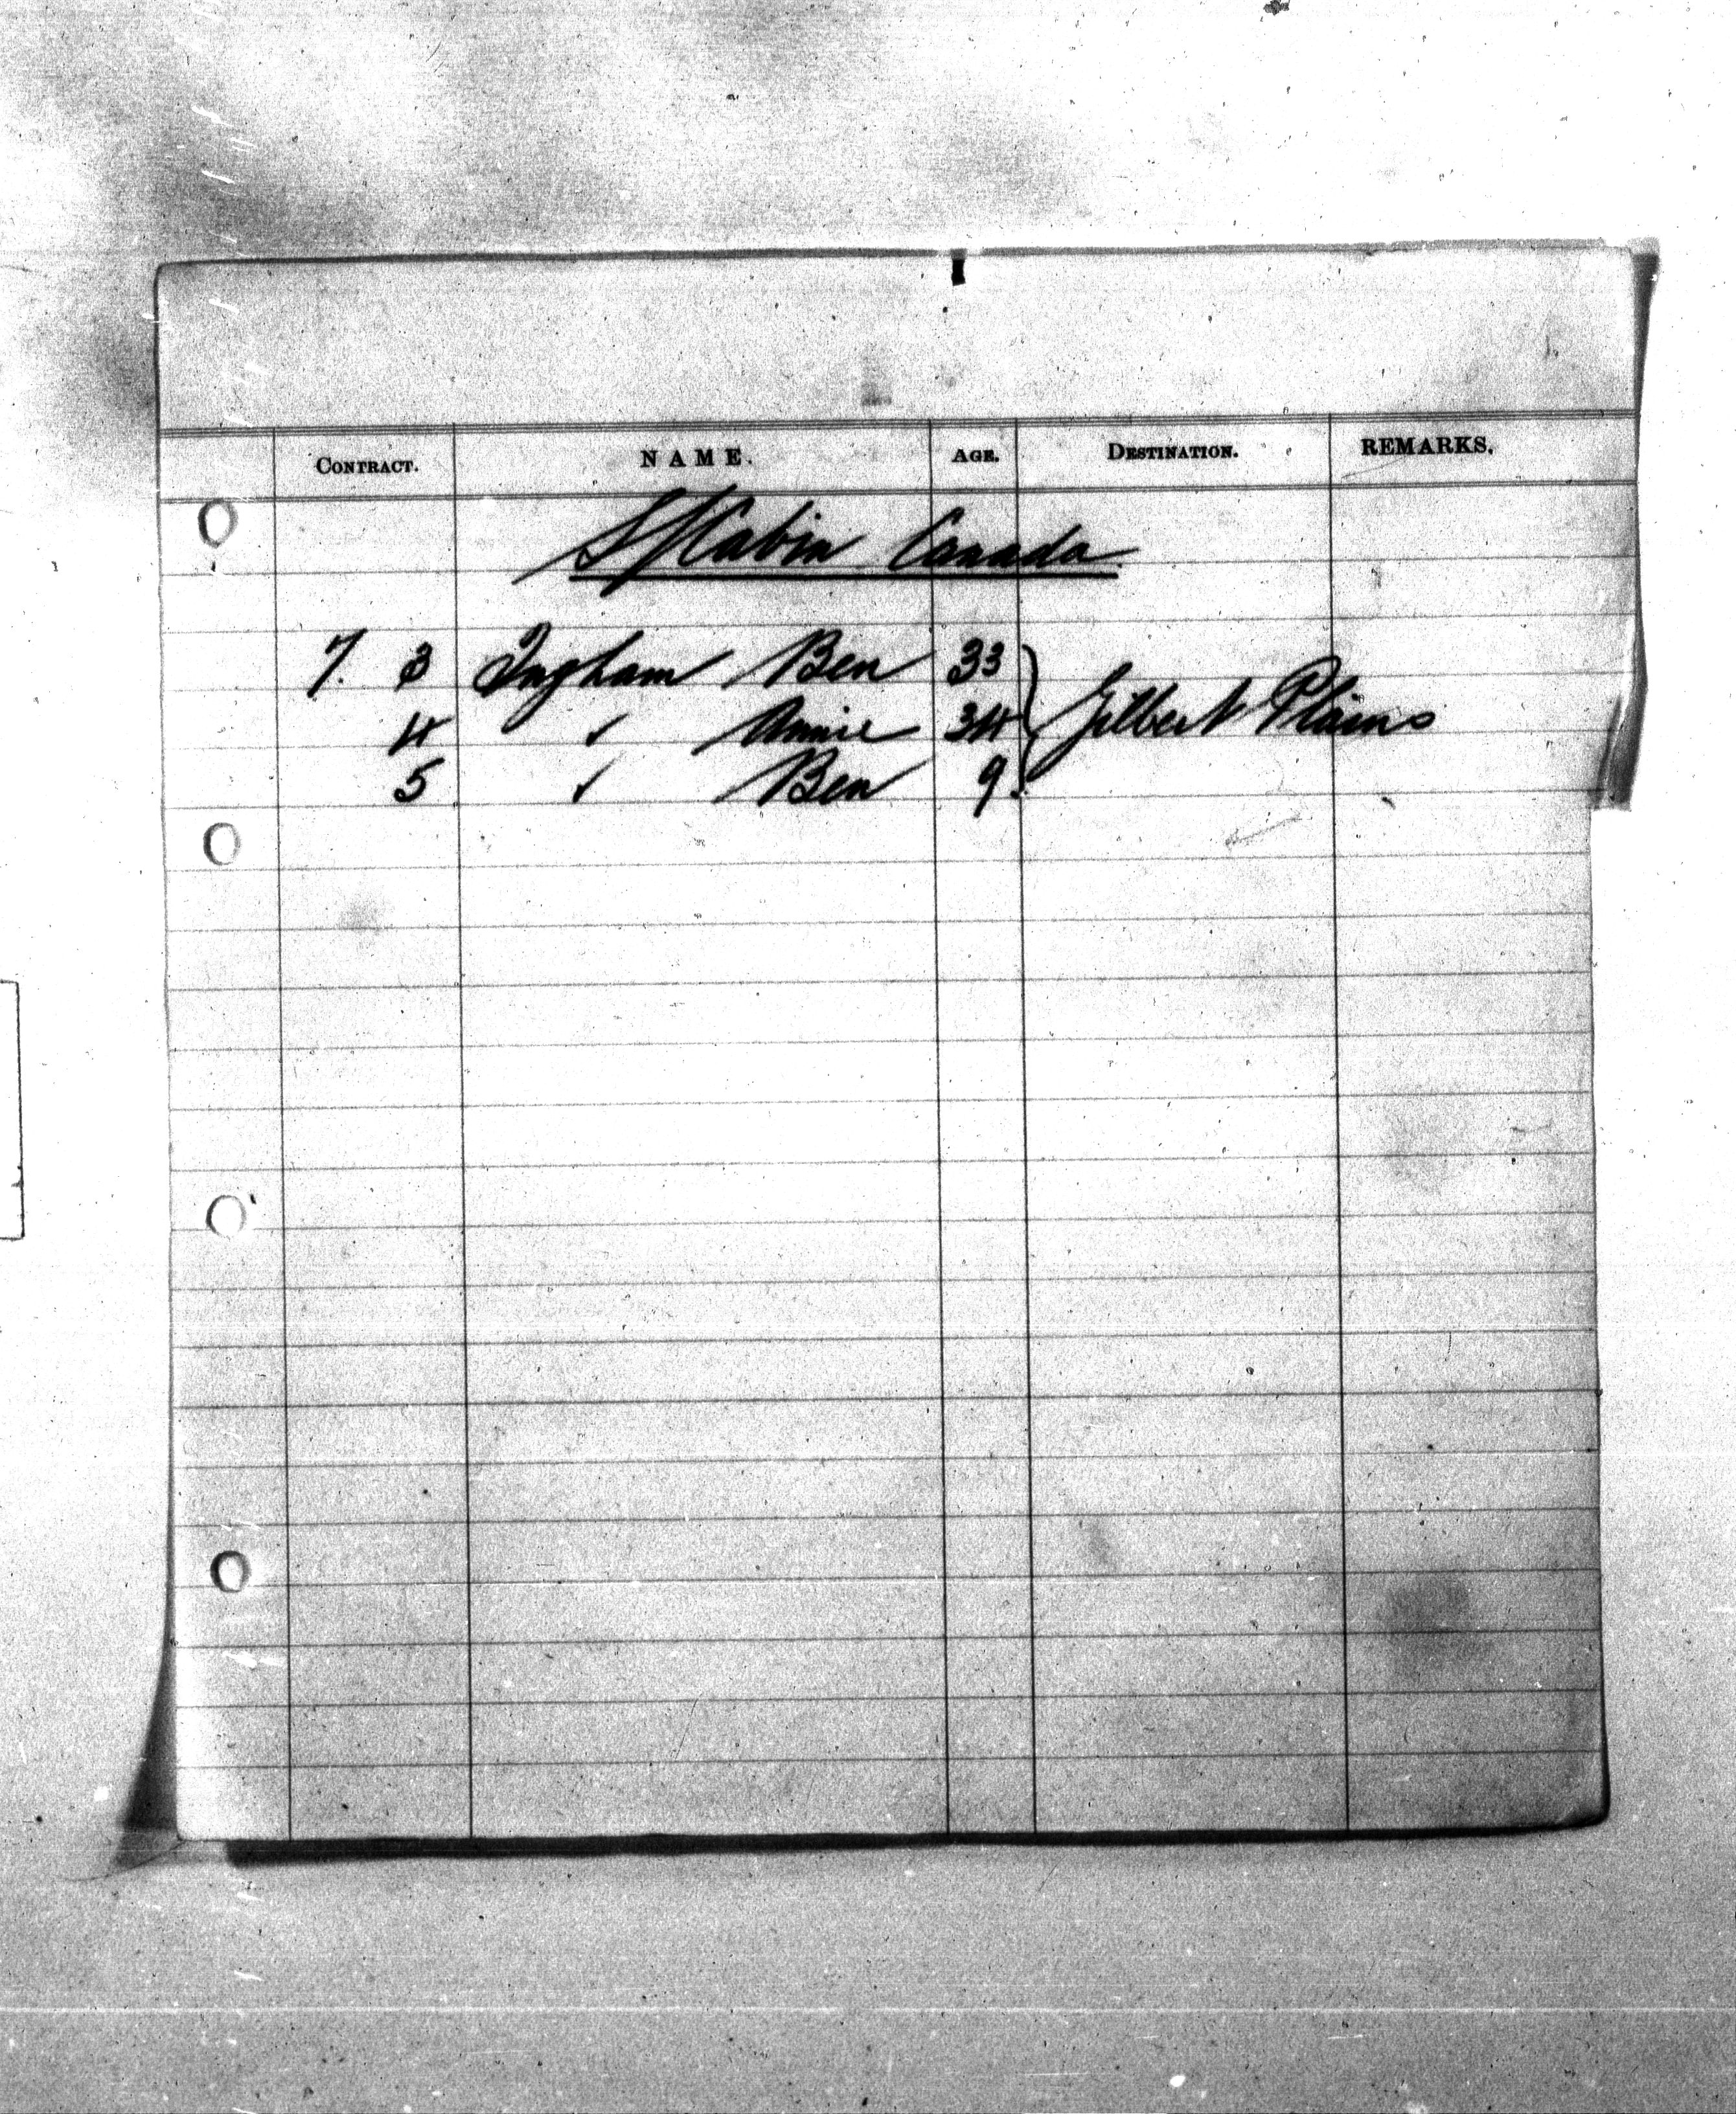 CONTRACT. NAME. AGE. DESTINATION. REMARKS.
S/Cabin Canada
7. 3 Ingham Ben 33 Gilbert Plains
4 ✓ Annie 34
5 ✓ Ben 9